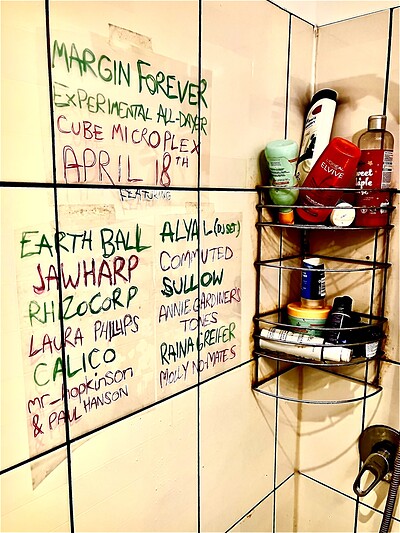 MARGIN FOREVER
EXPERIMENTAL ALL-DAYER
CUBE MICROPLEX
APRIL 18TH
FEATURING
EARTH BALL
JAWHARP
RHIZOCORP
LAURA PHILLIPS
CALICO
mr_hopkinson
& PAUL HANSON
ALYA L (DJ SET)
COMMUTED
SULLOW
ANNIE GARDINER'S
TONES
RAINA GREIFER
MOLLY NO-MATES
ELVIVE
sweet